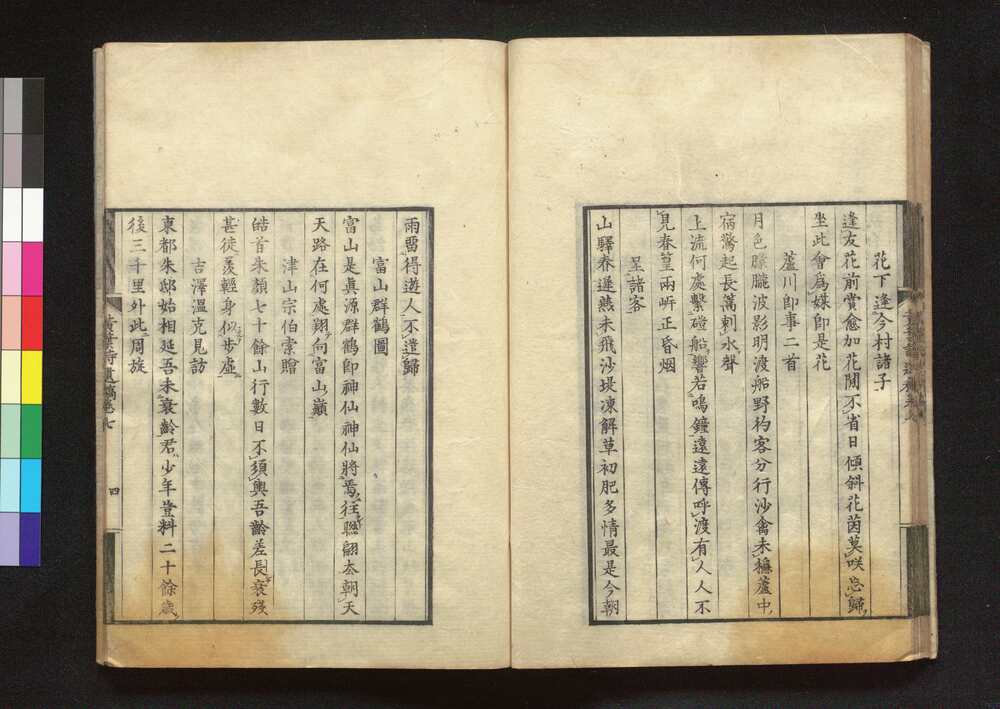 花下逢今村諸子
逢友花前賞愈加花開不省日傾斜花茵莫咲忘歸
坐此會爲媒卽是花
蘆川卽事二首
月色朦朧波影明渡船野杓客分行沙禽未穩蘆中
宿驚起長蒿刺水聲
上流何處繫礮船響若鳴鐘遠遠傳呼渡有人人不
見春篁兩岍正昏烟
呈諸客
山驛春遲燕未飛沙堤凍解草初肥多情最是今朝
雨留得遊人不遽歸
富山群鶴圖
富山是眞源群鶴卽神仙神仙將焉往聯翩夲朝天
天路在何處翔句富山巓
津山宗伯索贈
皓首朱顏七十餘山行數日不須輿吾齡差長衰殘
甚徒羨輕身似步虛
古澤溫克見訪
東都朱邸始相延吾未衰齡君少年豈料二十餘歲
後三千里外此周旋
黃葉夕陽
四